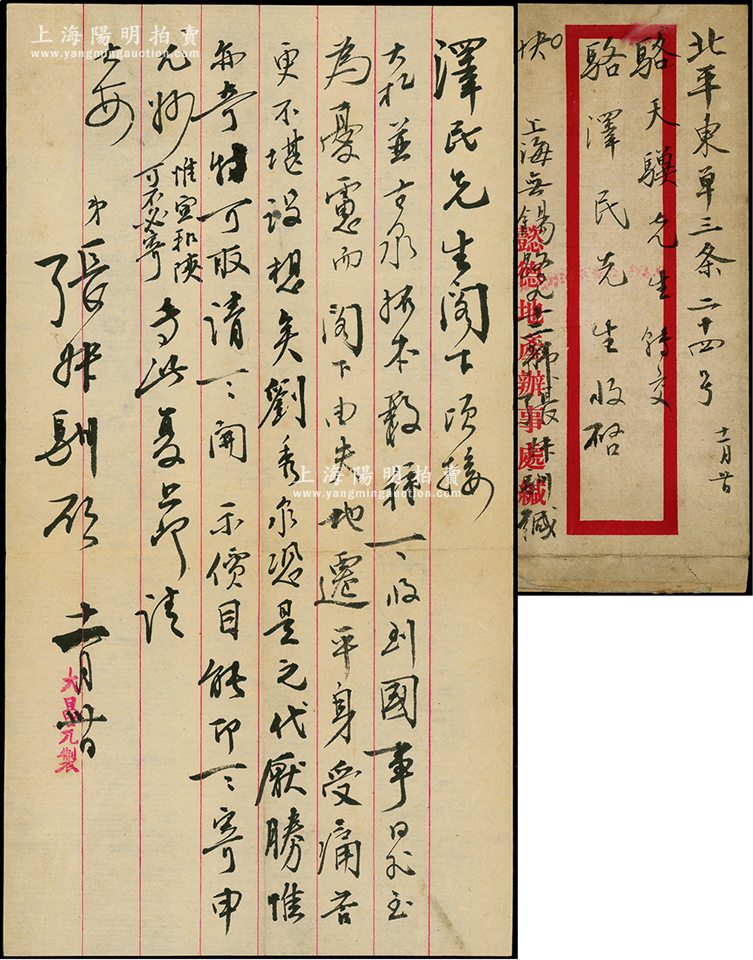 上海陽明拍賣
www.yangmingauction.com
澤民先生閣下頃接
大札並古泉拓本數種一一收到國事日非至
為憂慮而閣下由夫地遷平身受痛苦
更不堪設想矣劉秀泉恐是元代厭勝惟
亦奇特可取請一一開示價目能即一一寄申
尤妙
惟宣和陝
可不必寄
專此复上即請
台安
弟張絅馴頓
十一月卅日
大昌元製
上海陽明拍賣
www.yangmingauction.com
北平東單三条二十四号
駱天驥先生轉交
駱澤民先生收啓
快
上海無錫路九十二号張絅馴緘
懿德地產辦事處緘
十一月卅日